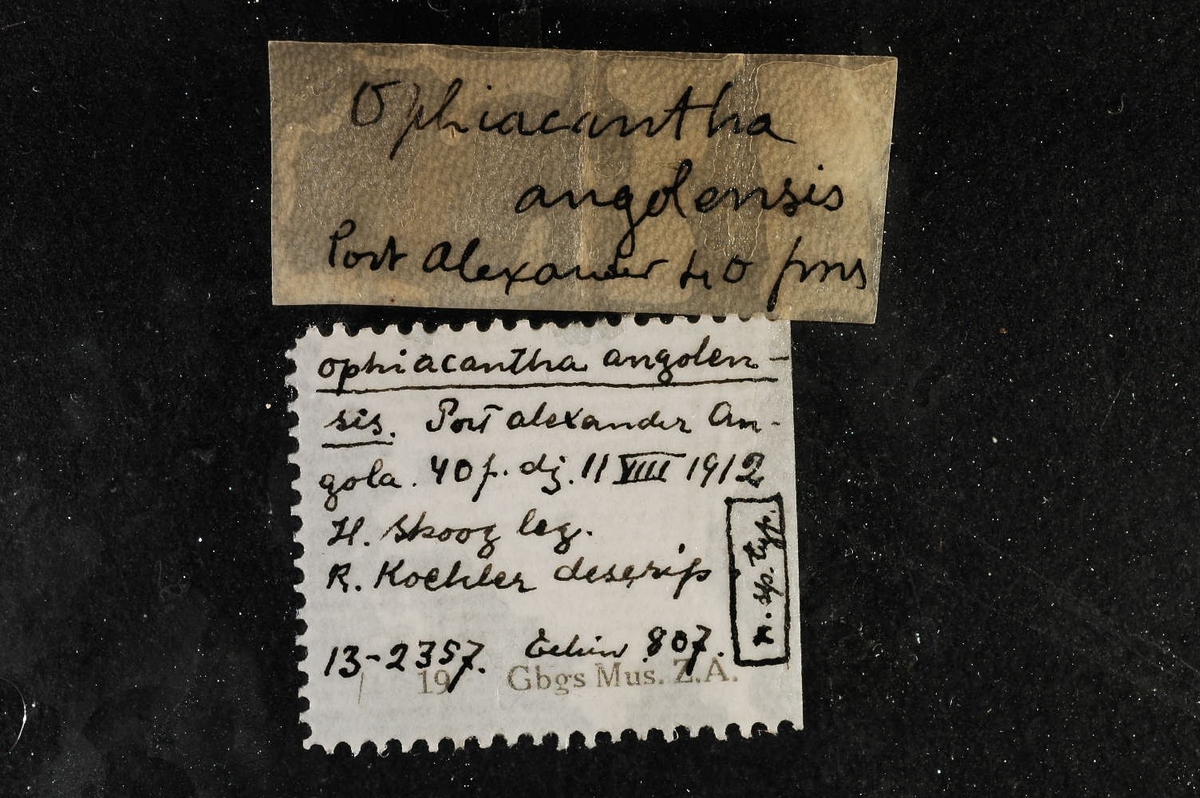 Ophiacantha
angolensis
Port Alexander 40 fms
Ophiacantha angolen-
sis. Port Alexander An-
gola. 40 f. dj. 11 VIII 1912
H. Skoog leg.
R. Koehler descrips
n. sp. typ.
13-2357. Echin 807.
19 Gbgs Mus. Z.A.